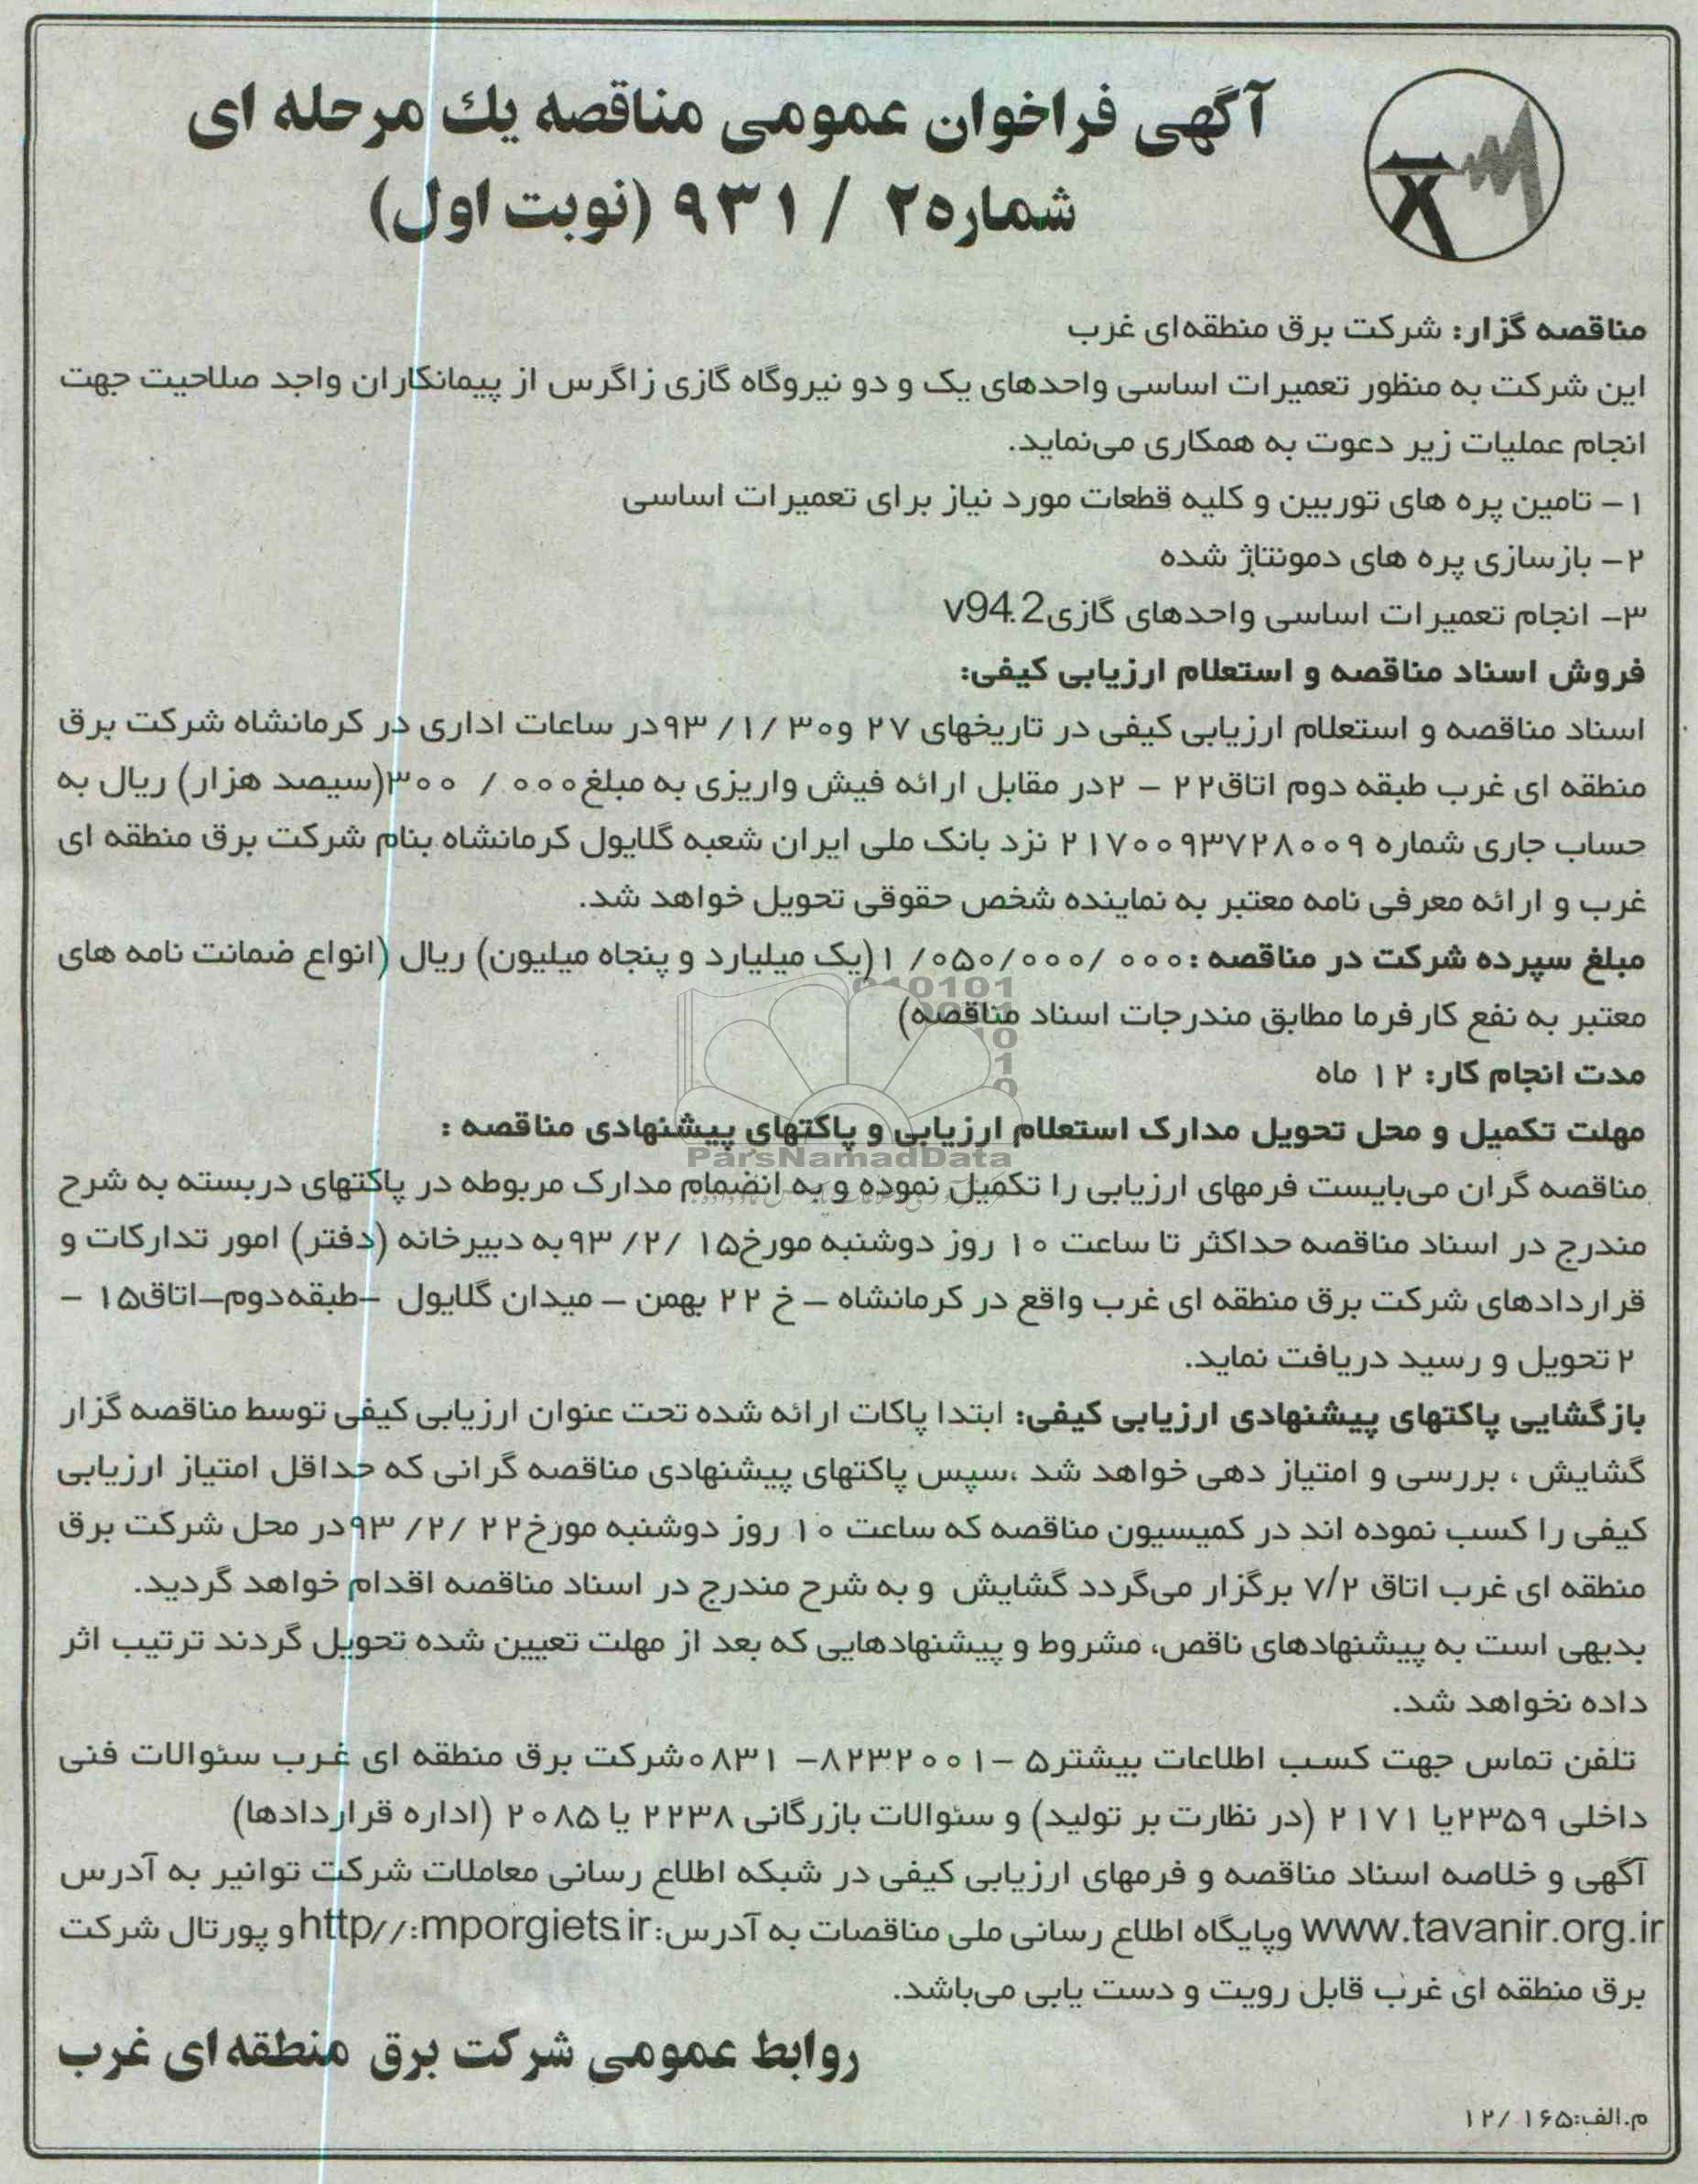 آگهی فراخوان عمومی مناقصه یك مرحله ای
شماره۲ / ۹۳۱ (نوبت اول)
مناقصه گزار: شرکت برق منطقه‌ای غرب
این شرکت به منظور تعمیرات اساسی واحدهای یک و دو نیروگاه گازی زاگرس از پیمانکاران واجد صلاحیت جهت
انجام عملیات زیر دعوت به همکاری می‌نماید.
۱- تامین پره های توربین و کلیه قطعات مورد نیاز برای تعمیرات اساسی
۲- بازسازی پره های دمونتاژ شده
۳- انجام تعمیرات اساسی واحدهای گازی v94.2
فروش اسناد مناقصه و استعلام ارزیابی کیفی:
اسناد مناقصه و استعلام ارزیابی کیفی در تاریخهای ۲۷ و۳۰ /۱/ ۹۳در ساعات اداری در کرمانشاه شرکت برق
منطقه ای غرب طبقه دوم اتاق۲۲ - ۲در مقابل ارائه فیش واریزی به مبلغ۰۰۰ / ۳۰۰(سیصد هزار) ریال به
حساب جاری شماره ۲۱۷۰۰۹۳۷۲۸۰۰۹ نزد بانک ملی ایران شعبه گلایول کرمانشاه بنام شرکت برق منطقه ای
غرب و ارائه معرفی نامه معتبر به نماینده شخص حقوقی تحویل خواهد شد.
مبلغ سپرده شرکت در مناقصه :۰۰۰ /۰۰۰/۰۵۰/ ۱(یک میلیارد و پنجاه میلیون) ریال (انواع ضمانت نامه های
معتبر به نفع کارفرما مطابق مندرجات اسناد مناقصه)
مدت انجام کار: ۱۲ ماه
مهلت تکمیل و محل تحویل مدارک استعلام ارزیابی و پاکتهای پیشنهادی مناقصه :
مناقصه گران می‌بایست فرمهای ارزیابی را تکمیل نموده و به انضمام مدارک مربوطه در پاکتهای دربسته به شرح
مندرج در اسناد مناقصه حداکثر تا ساعت ۱۰ روز دوشنبه مورخ۱۵ /۲/ ۹۳به دبیرخانه (دفتر) امور تدارکات و
قراردادهای شرکت برق منطقه ای غرب واقع در کرمانشاه - خ ۲۲ بهمن - میدان گلایول -طبقه‌دوم-اتاق۱۵ -
۲ تحویل و رسید دریافت نماید.
بازگشایی پاکتهای پیشنهادی ارزیابی کیفی: ابتدا پاکات ارائه شده تحت عنوان ارزیابی کیفی توسط مناقصه گزار
گشایش ، بررسی و امتیاز دهی خواهد شد ،سپس پاکتهای پیشنهادی مناقصه گرانی که حداقل امتیاز ارزیابی
کیفی را کسب نموده اند در کمیسیون مناقصه که ساعت ۱۰ روز دوشنبه مورخ۲۲ /۲/ ۹۳در محل شرکت برق
منطقه ای غرب اتاق ۷/۲ برگزار می‌گردد گشایش و به شرح مندرج در اسناد مناقصه اقدام خواهد گردید.
بدیهی است به پیشنهادهای ناقص، مشروط و پیشنهادهایی که بعد از مهلت تعیین شده تحویل گردند ترتیب اثر
داده نخواهد شد.
تلفن تماس جهت کسب اطلاعات بیشتر۵ -۸۲۳۲۰۰۱- ۰۸۳۱شرکت برق منطقه ای غرب سئوالات فنی
داخلی ۲۳۵۹یا ۲۱۷۱ (در نظارت بر تولید) و سئوالات بازرگانی ۲۲۳۸ یا ۲۰۸۵ (اداره قراردادها)
آگهی و خلاصه اسناد مناقصه و فرمهای ارزیابی کیفی در شبکه اطلاع رسانی معاملات شرکت توانیر به آدرس
www.tavanir.org.ir وپایگاه اطلاع رسانی ملی مناقصات به آدرس:http//:mporgiets.irو پورتال شرکت
برق منطقه ای غرب قابل رویت و دست یابی می‌باشد.
روابط عمومی شرکت برق منطقه ای غرب
م.الف:۱۶۵ /۱۲
ParsNamadData